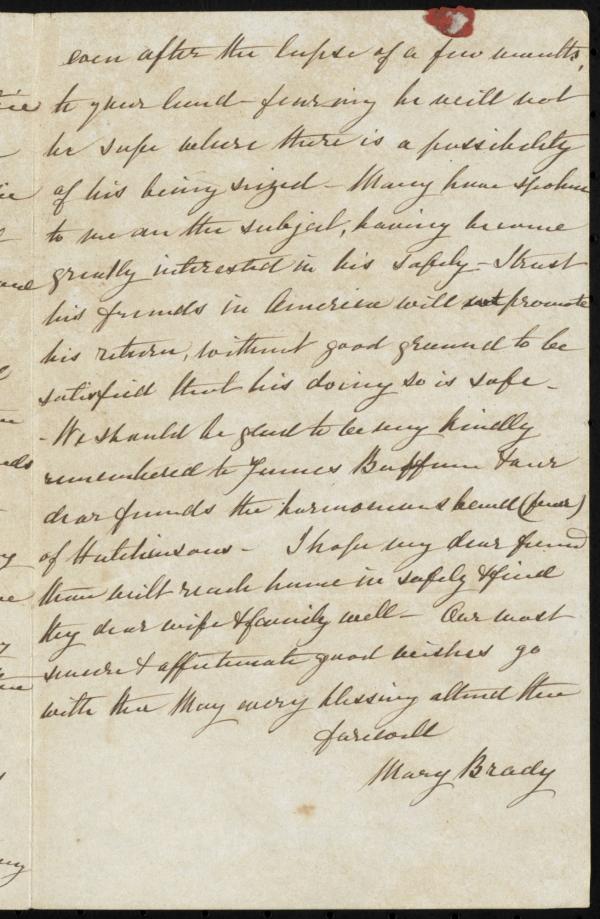 even after the lapse of a few months,
to your land - fearing he will not
be safe where there is a possibility
of his being seized - Many have spoken
to me on the subject, having become
greatly interested in his safety - I trust
his friends in America will not promote
his return, without good ground to be
satisfied that his doing so is safe -
- We should be glad to be very kindly
remembered to James Buffum & our
dear friends the harmonious band (four)
of Hutchinsons - I hope my dear friend
thou wilt reach home in safety & find
thy dear wife & family well - Our most
sincere & affectionate good wishes go
with thee May every blessing attend thee
farewell
Mary Brady